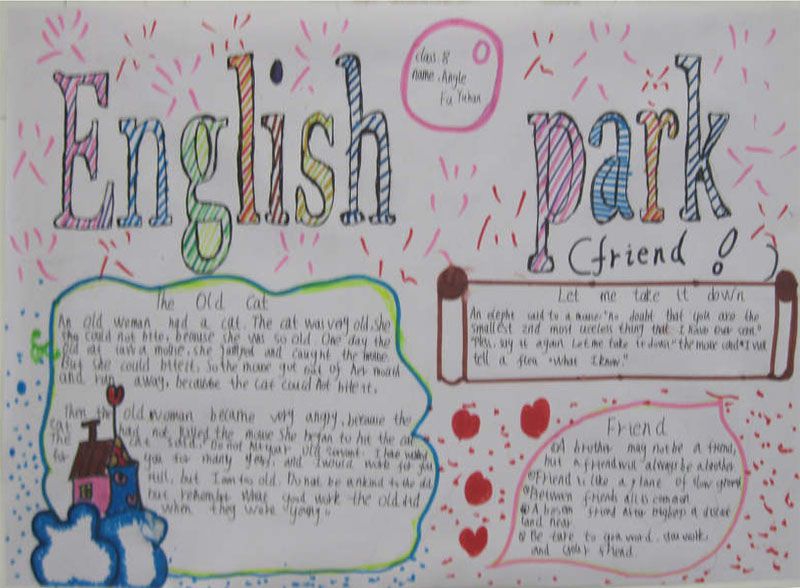 English park
(friend!)
class: 8
name: Angle
Fu Yuhan
The Old Cat
An old woman had a cat. The cat was very old. She
could not bite, because she was so old. One day the
old cat saw a mouse, she jumped and caught the mouse.
But she could bite it. So the mouse got out of her mouth
and run away, because the cat could not bite it.
Then the old woman became very angry, because the
cat had not killed the mouse. She began to hit the cat.
The cat said: Do not hit your old servant. I have
for you for many years, and I would work for you
still, but I am too old. Do not be unkind to the old
but remember what good work the old did
when they were young."
Let me take it down
An said to a mouse "No doubt that you are the
smallest and most useless thing that I have ever seen."
say it again. Let me take it down" the mouse said "I will
tell a flea what I know."
Friend
A brother may not be a friend,
but a friend will always be a brother
Friend is like a of slow growth
Between friends all is common
A friend
land near.
your work
and your friend